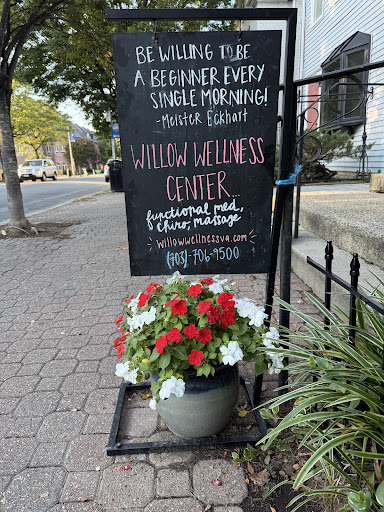 BE WILLING TO BE
A BEGINNER EVERY
SINGLE MORNING!
-Meister Eckhart
WILLOW WELLNESS
CENTER...
functional med,
chiro, massage
willowwellnessva.com
(703)-706-9500